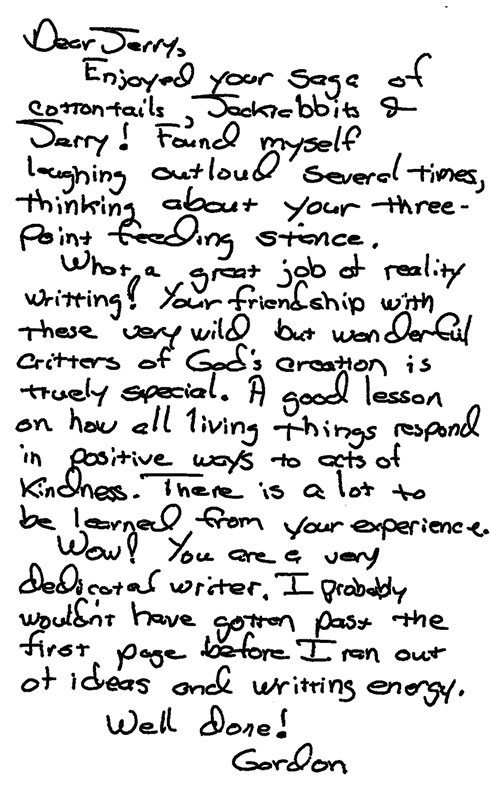 Dear Jerry,
Enjoyed your saga of
cottontails, Jackrabbits &
Jerry! Found myself
laughing outloud several times,
thinking about your three-
point feeding stance.
What a great job of reality
writting! Your friendship with
these very wild but wonderful
critters of God's creation is
truely special. A good lesson
on how all living things respond
in positive ways to acts of
kindness. There is a lot to
be learned from your experience.
Wow! You are a very
dedicated writer. I probably
wouldn't have gotten past the
first page before I ran out
of ideas and writting energy.
Well done!
Gordon